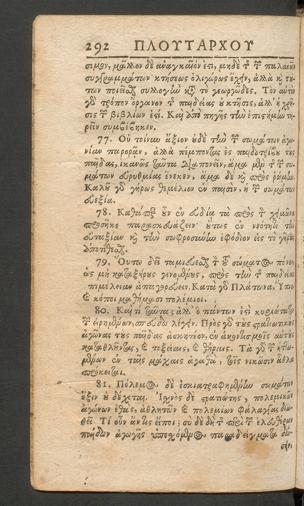 292 ΠΛΟΥΤΑΡΧΟΥ
σιμον, μᾶλλον δὲ ἀναγκαῖόν ἐςι, μηδὲ τ τ παλαιῶν
συγγραμμάτων κτήσεως ὀλιγώρως ἔχειν, ἀλλὰ κ τύ-
των ποιεῖσθ συλλογὴν κτ το γεωργῶδες. Τὸν αὐτὸν
γὸ τρόπον ὄργανον τ παιδείας ἡ κτῆσις, ἀλλ' ἡ χρῆ-
σις τ βιβλίων ἐςί. Καὶ ἀπὸ πηγῆς τὼ ἐπιςήμην τη-
ρεῖν συμβέβηκεν.
77. Οὐ τοίνυν ἄξιον οὐδὲ τὼ τ σωμάτων ἀγω-
νίαν παρορᾶν, ἀλλὰ πέμποντας ἐς παιδοτρίβου τὲς
παῖδας, ἱκανῶς ταῦτα διαπονεῖν, ἅμα μὲν τ τ σω-
μάτων εὐρυθμίας ἕνεκεν, ἅμα δὲ κ πρὸς ῥώμην.
Καλοῦ γὸ γήρως θεμέλιον ἐν παισὶν, ἡ τ σωμάτων
εὐεξία.
78. Καθάπερ οὖν ἐν εὐδίᾳ τὰ πρὸς τ χειμῶνα
προσῆκε παρασκευάζειν· οὕτως ἐν νεότητι τὼ
εὐταξίαν κ τὼ σωφροσύνην ἐφόδιον εἰς τὸ γῆρας
ἀποτίθεσθ.
79. Οὕτω δεῖ ταμιεύεσθ τ τ σώματος πόνον,
ὡς μὴ καταξήρους γινομένους, πρὸς τὼ τ παιδείας
ἐπιμέλειαν ἀπαγορεύειν. Κατὰ γὸ Πλάτωνα, ὕπνοι
κ κόποι μαθήμασι πολέμιοι.
80. Καὶ τί ταῦτα; ἀλλ' ὃ πάντων ἐςὶ κυριώτατον
τ εἰρημένων, σπεύδω λέγειν. Πρὸς γὸ τοὺς ςρατιωτικοὺς
ἀγῶνας τοὺς παῖδας ἀσκητέον, ἐν ἀκοντισμοῖς αὐτοὺς
καταθλοῦντας, κ τοξείαις, κ θήραις. Τὰ γὸ τ ἡττω-
μένων ἐν ταῖς μάχαις ἀγαθὰ, τοῖς νικῶσιν ἆθλα
πρόκειται.
81. Πόλεμος δὲ ἐσκιατραφημένην σωμάτων
ἕξιν οὐ δέχεται. Ἰσχνὸς δὲ ςρατιώτης, πολεμικῶν
ἀγώνων ἐθὰς, ἀθλητῶν κ πολεμίων φάλαγγας διω-
θεῖ. Τί οὖν ἄν τις εἴποι; σὺ δὲ δὴ τ τ ἐλευθέρων
παίδων ἀγωγῆς ὑποσχόμενος παραδείγματα δώ-
σειν